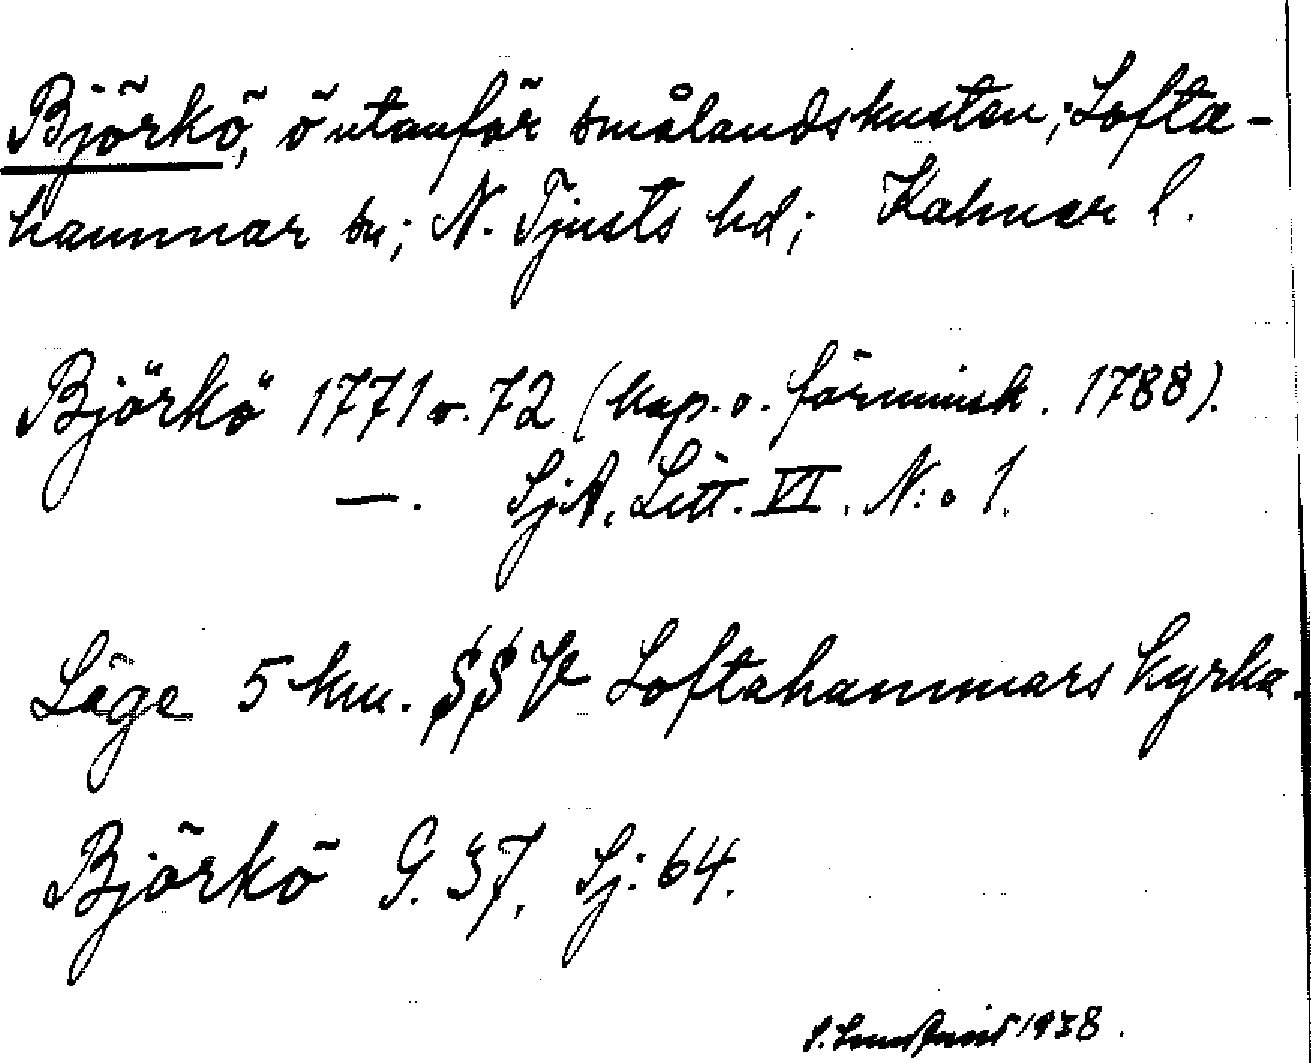 Björkö, ö utanför smålandskusten; Lofta-
hammar sn; N. Tjusts hd; Kalmar l.
Björkö 1771 o. 72 (kop. o. förminsk. 1788).
—. SjA. Litt. VI. N:o 1.
Läge 5 km. SSV Loftahammars kyrka.
Björkö G. 37, Sj: 64.
1938.